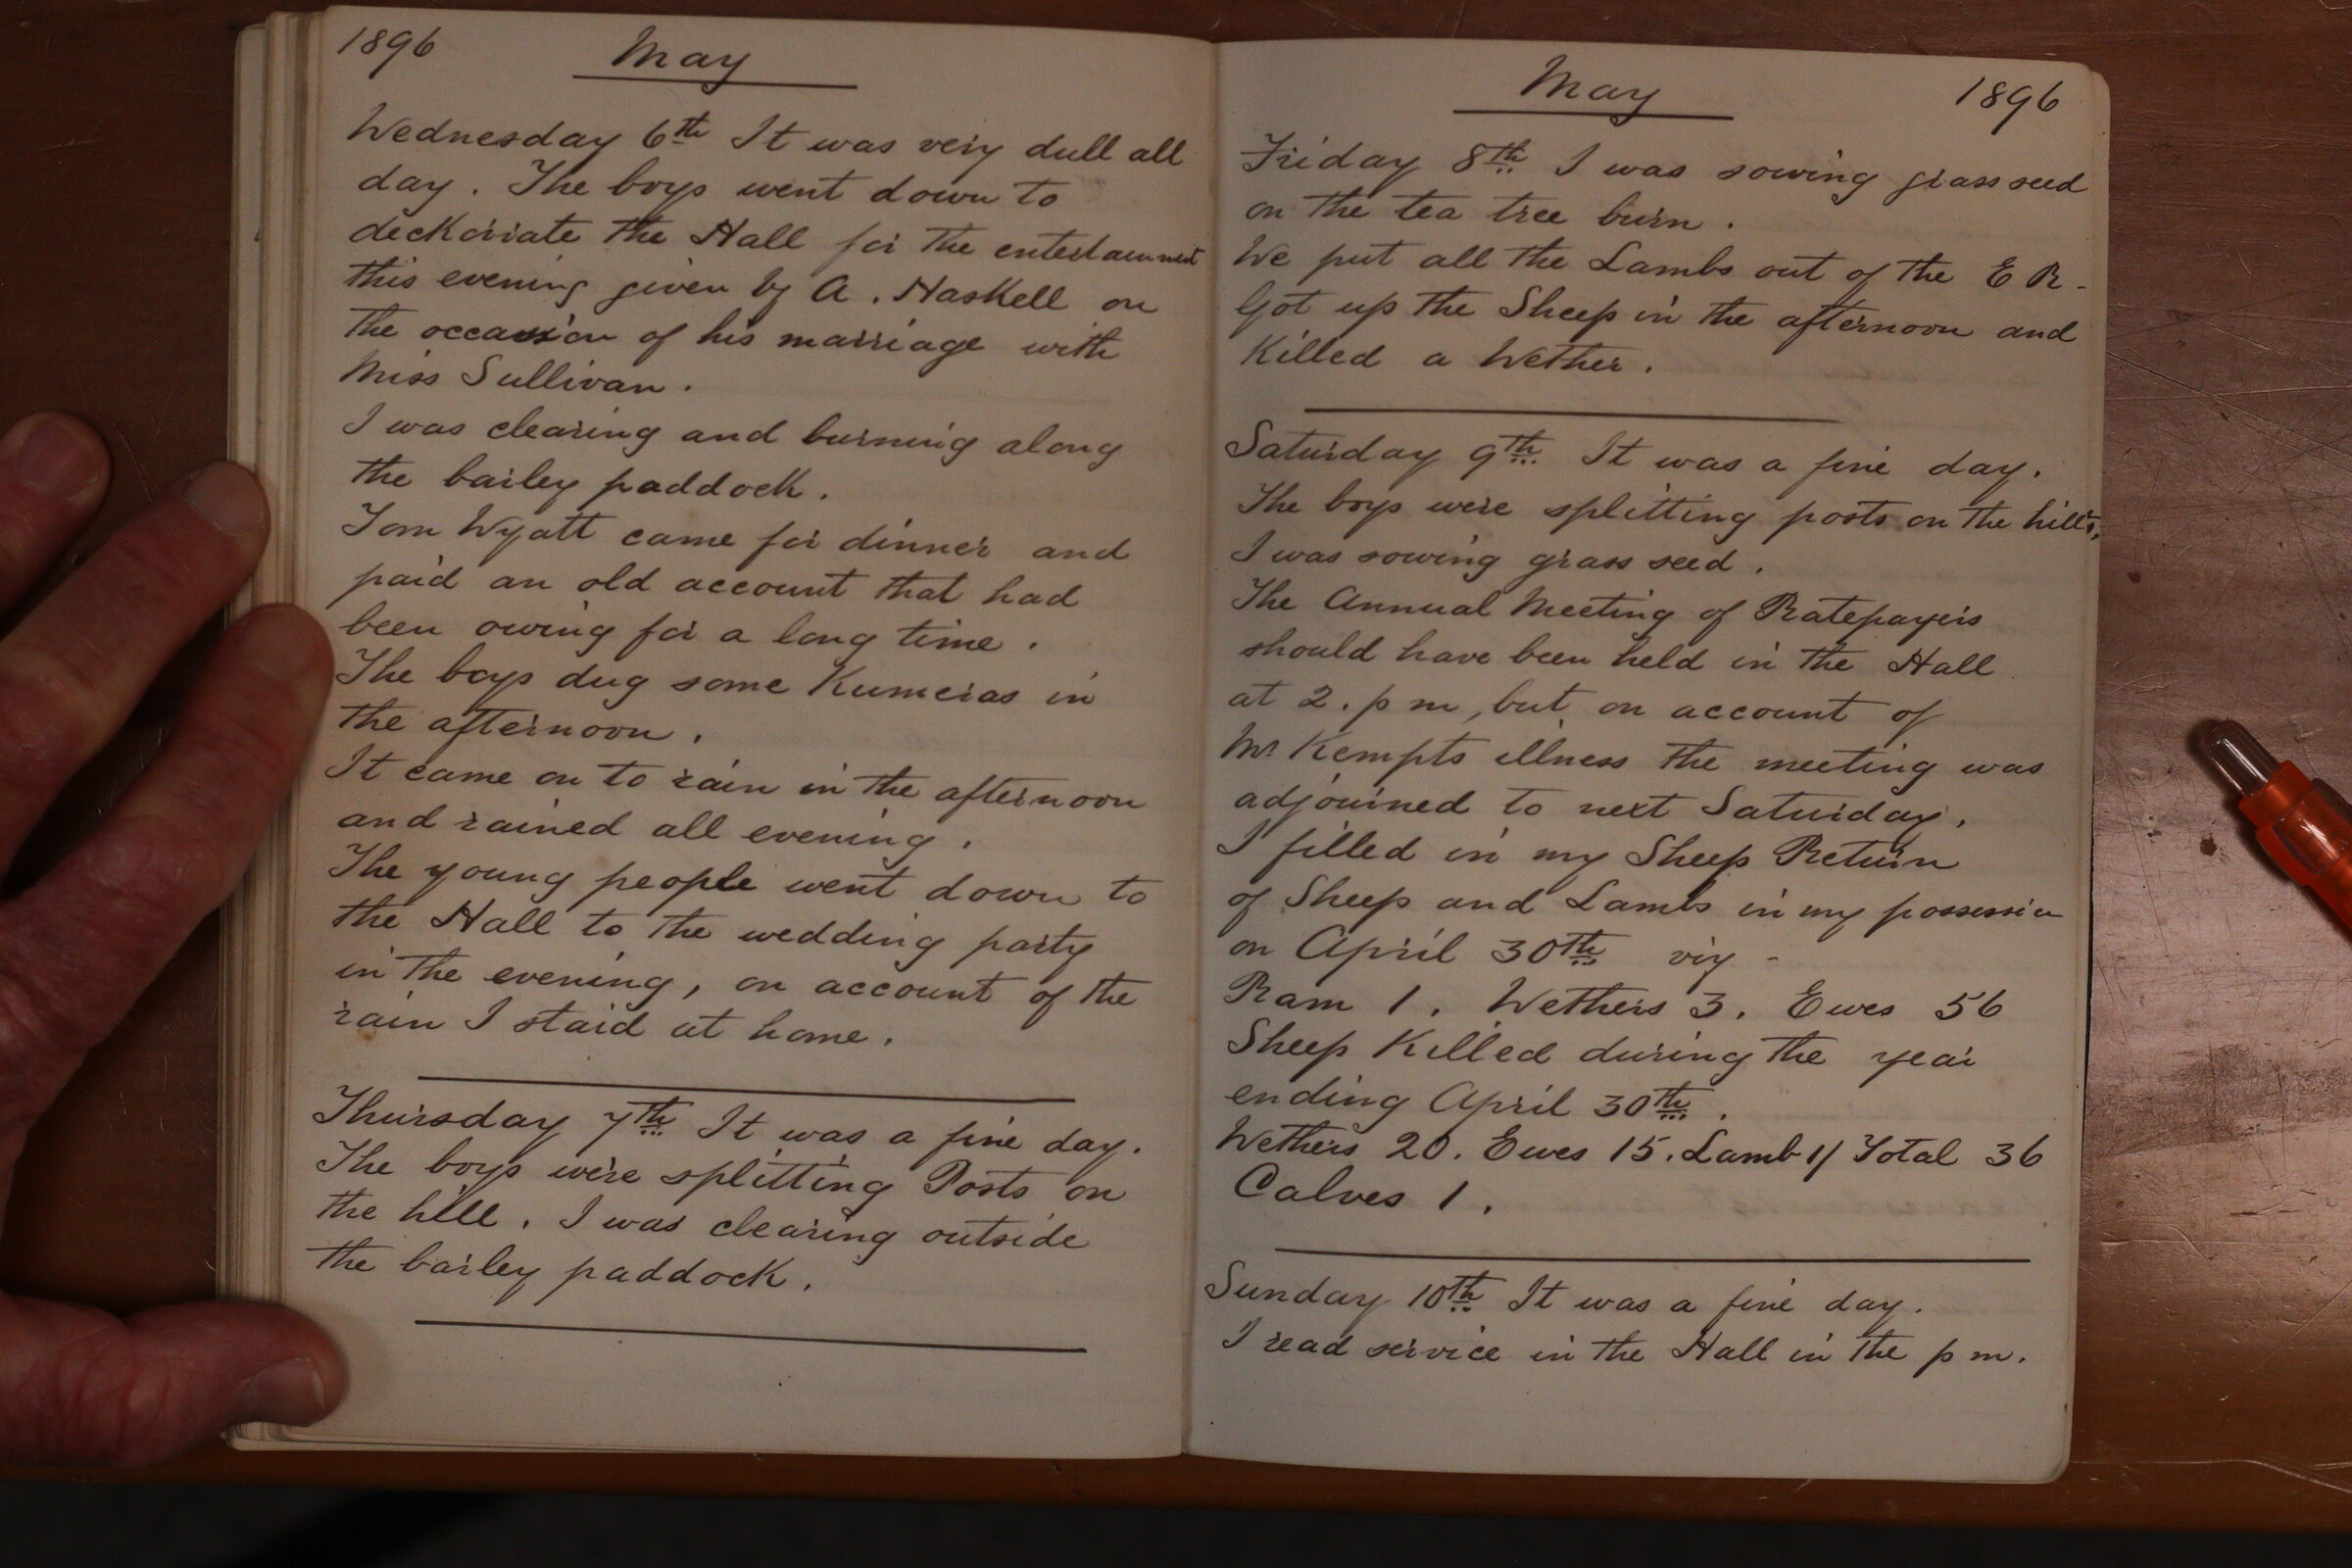 1896
May
Wednesday 6th It was very dull all
day. The boys went down to
deckorate the Hall for the entertainment
this evening given by A. Haskell on
the occasion of his marriage with
Miss Sullivan.
I was clearing and burning along
the barley paddock.
Tom Wyatt came for dinner and
paid an old account that had
been owing for a long time.
The boys dug some Kumeras in
the afternoon.
It came on to rain in the afternoon
and rained all evening.
The young people went down to
the Hall to the wedding party
in the evening, on account of the
rain I staid at home.
Thursday 7th It was a fine day.
The boys were splitting Posts on
the hill. I was clearing outside
the barley paddock.
May
1896
Friday 8th I was sowing grass seed
on the tea tree burn.
We put all the Lambs out of the E R.
Got up the Sheep in the afternoon and
Killed a Wether.
Saturday 9th It was a fine day.
The boys were splitting posts on the hills,
I was sowing grass seed.
The Annual Meeting of Ratepayers
should have been held in the Hall
at 2. p m, but on account of
Mr Kempts illness the meeting was
adjourned to next Saturday.
I filled in my Sheep Return
of Sheep and Lambs in my possession
on April 30th viz -
Ram 1. Wethers 3. Ewes 56
Sheep Killed during the year
ending April 30th.
Wethers 20. Ewes 15. Lamb 1/ Total 36
Calves 1.
Sunday 10th It was a fine day.
I read service in the Hall in the p m.